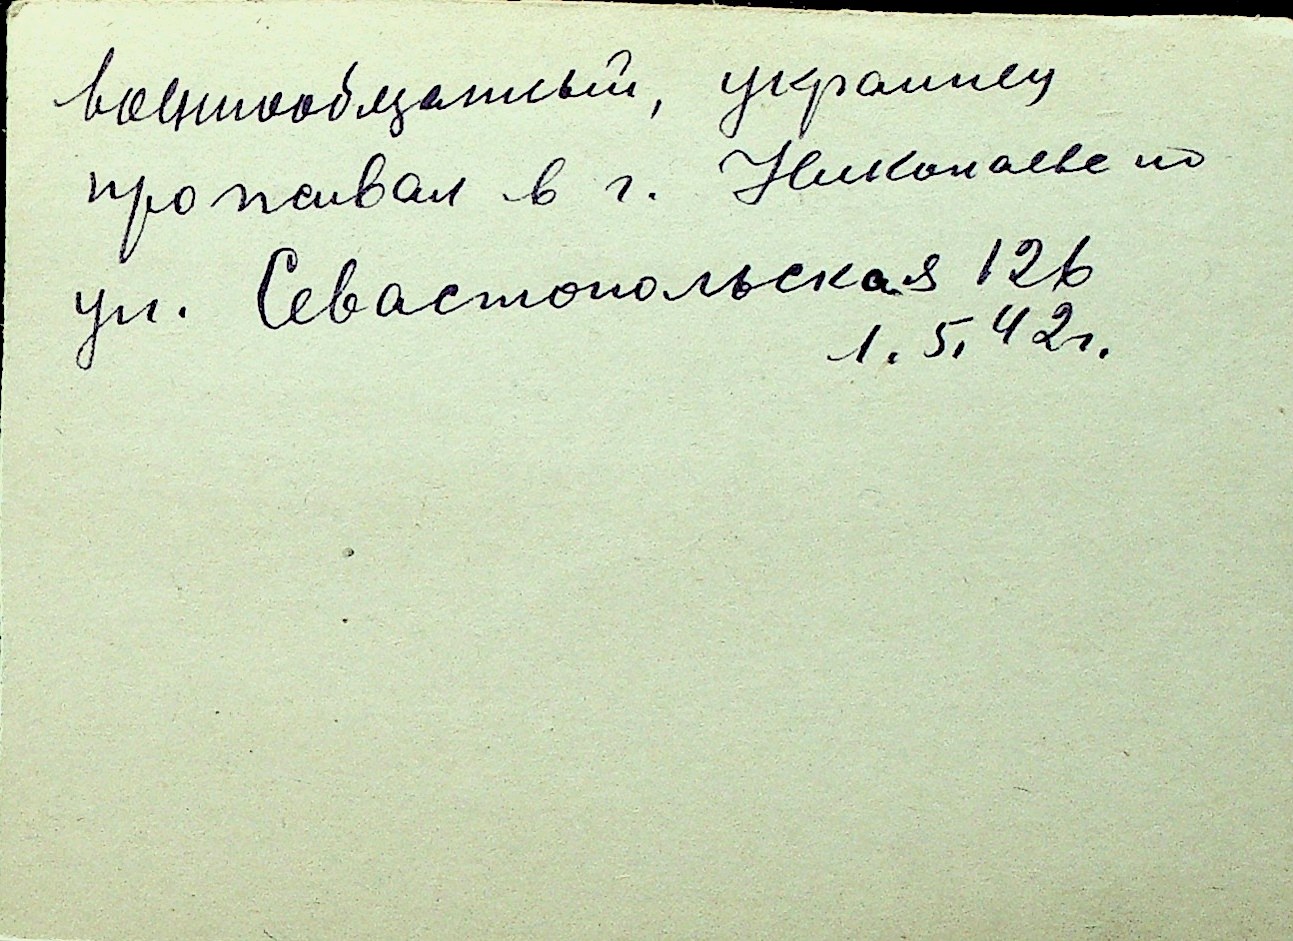 военнообязанный, украинец
проживал в г. Николаеве по
ул. Севастопольская 126
1.5.42г.